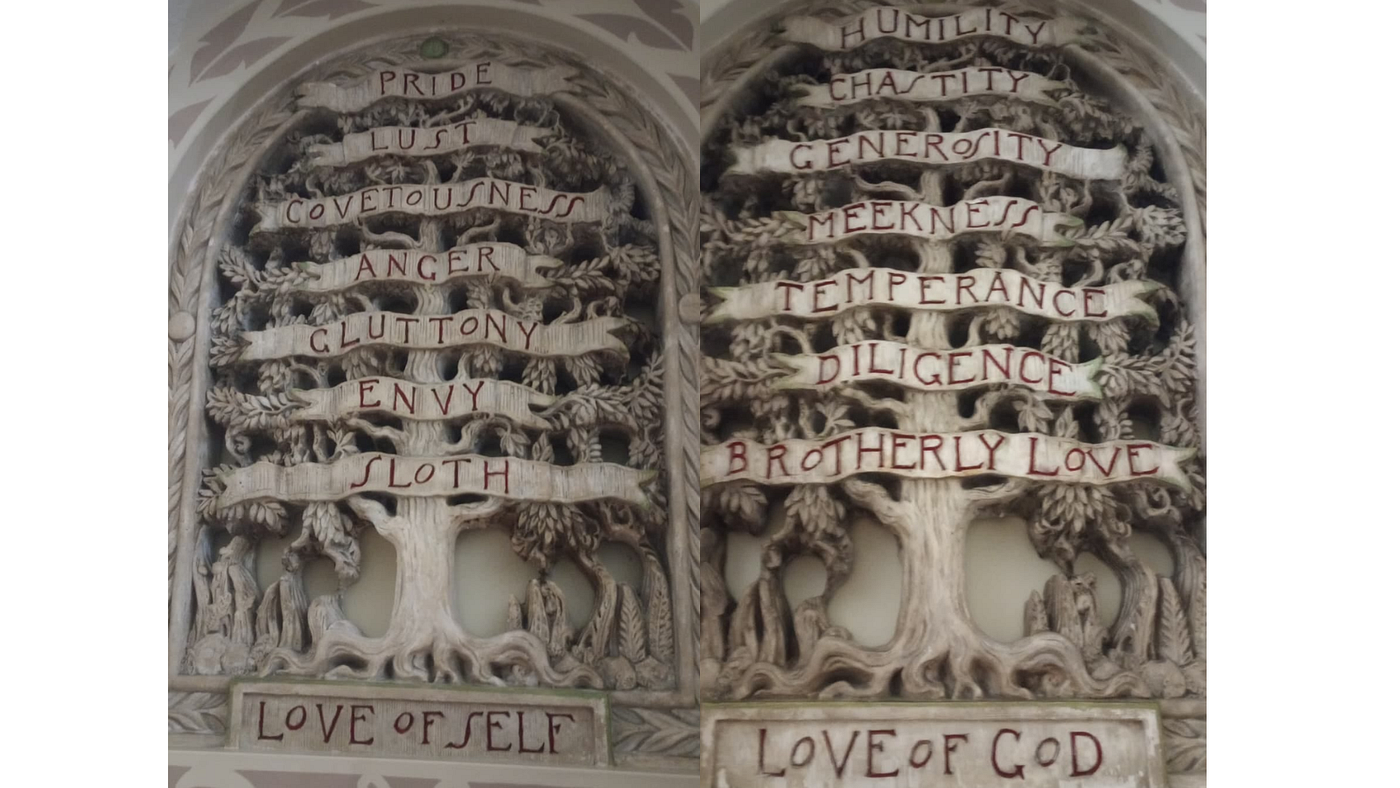 PRIDE
LUST
COVETOUSNESS
ANGER
GLUTTONY
ENVY
SLOTH
LOVE OF SELF
HUMILITY
CHASTITY
GENEROSITY
MEEKNESS
TEMPERANCE
DILIGENCE
BROTHERLY LOVE
LOVE OF GOD